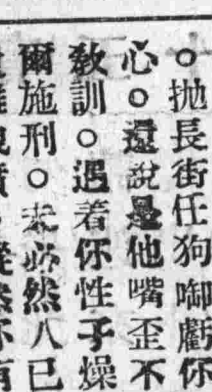 ○抛長街任狗啣虧你
心○還說是他嘴歪不
教訓○遇着你性子燥
爾施刑○未必然人已